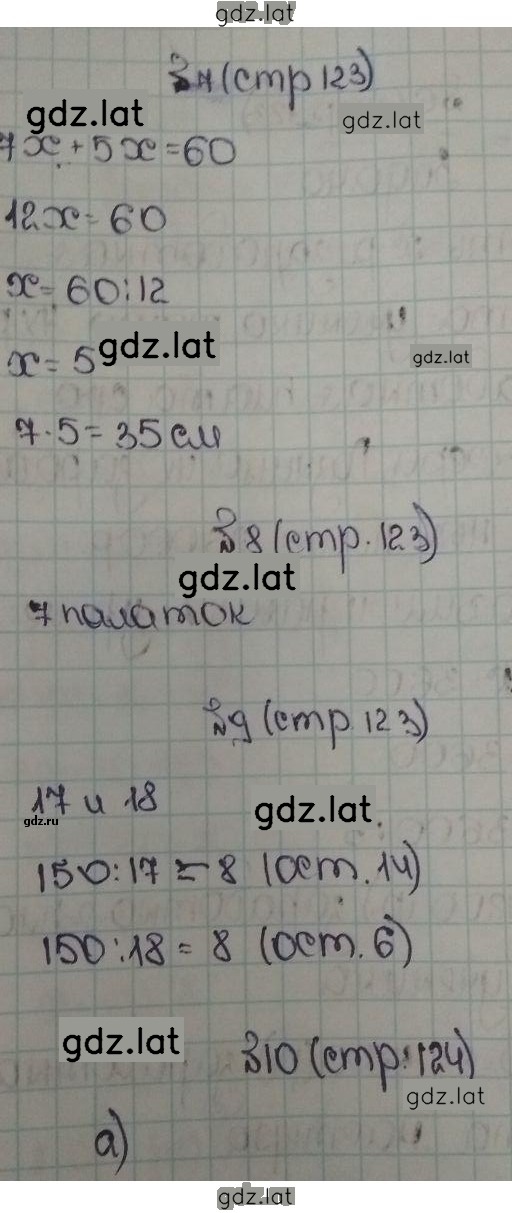 gdz.lat
№7 (стр 123)
gdz.lat
gdz.lat
7x + 5x = 60
12x = 60
x = 60:12
x = 5
gdz.lat
gdz.lat
7·5 = 35 см
№8 (стр. 123)
gdz.lat
7 палаток
№9 (стр 123)
17 и 18
gdz.lat
gdz.ru
150:17 = 8 (ост. 14)
150:18 = 8 (ост. 6)
gdz.lat
№10 (стр. 124)
gdz.lat
а)
gdz.lat